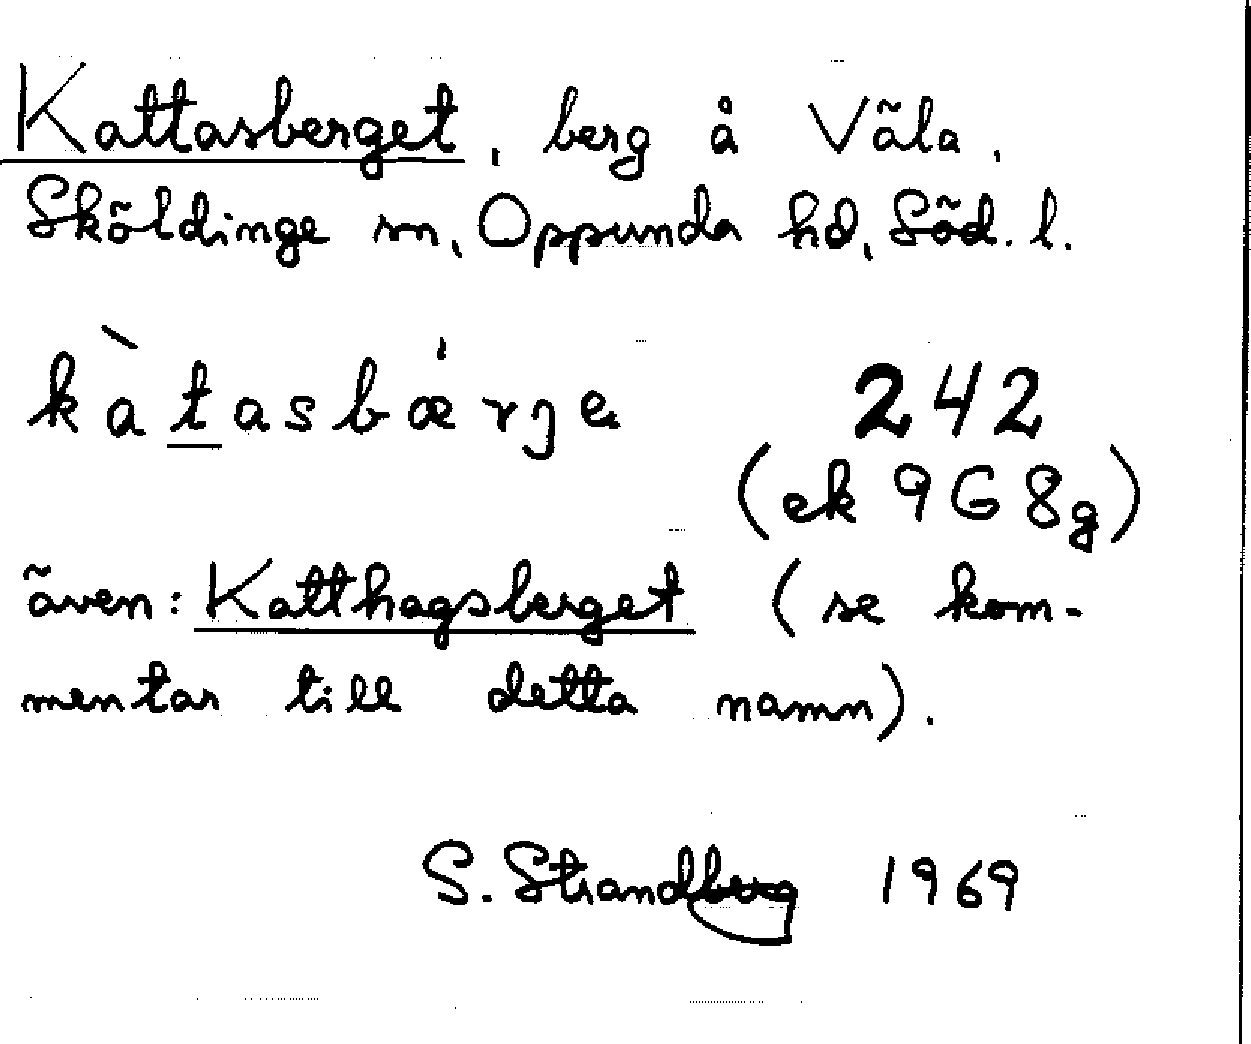 Kattasberget, berg å Väla,
Sköldinge sn, Oppunda hd, Söd. l.
kàtasbǽrje 242
(ek 9G8g)
även: Katthagsberget (se kom-
mentar till detta namn).
S. Strandberg 1969